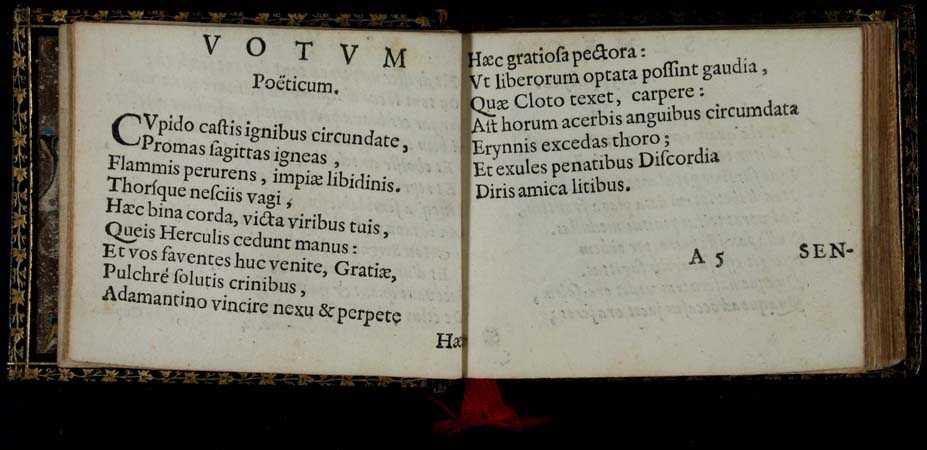 VOTVM
Poëticum.
CVpido caſtis ignibus circundate,
Promas ſagittas igneas,
Flammis perurens, impiæ libidinis.
Thorſque neſciis vagi;
Hæc bina corda, victa viribus tuis,
Queis Herculis cedunt manus:
Et vos faventes huc venite, Gratiæ,
Pulchré ſolutis crinibus,
Adamantino vincire nexu & perpete
Hæc
Hæc gratioſa pectora:
Vt liberorum optata poſſint gaudia,
Quæ Cloto texet, carpere:
Aſt horum acerbis anguibus circumdata
Erynnis excedas thoro;
Et exules penatibus Diſcordia
Diris amica litibus.
A 5
SEN-